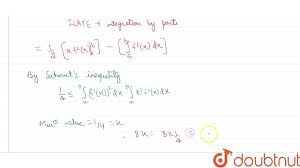 ILATE → integration by parts
= 1/2 [x f²(x)]ᵇₐ - [∫ᵇₐ f²(x) dx]
By Schwartz inequality
1/4 ≤ ∫ᵇₐ (f'(x))² dx ∫ᵇₐ x² f²(x) dx
Minᵐ value = 1/4 = K
8K = 8x1/4 = 2
doubtnut